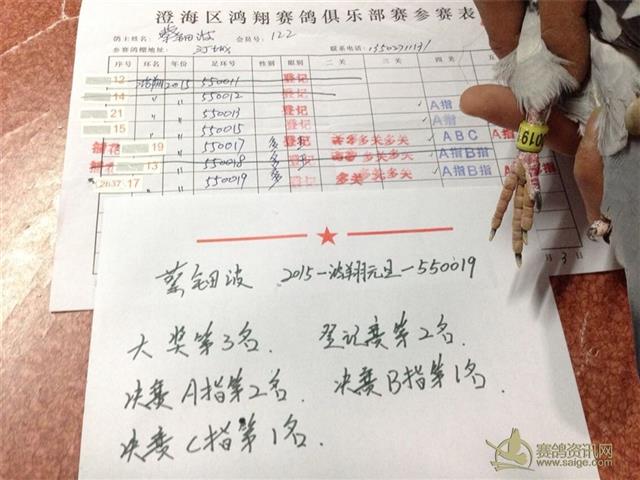 澄海区鸿翔赛鸽俱乐部赛参赛表
鸽主姓名: 蔡钿波 会员号: 122
参赛鸽棚地址: 联系电话:
序号 环名 年份 足环号 性别 眼别 二关 三关 四关
12 鸿翔 2015 550011 登记
14 〃 〃 550012 登记
21 〃 〃 550013 登记 ✓ A指
15 〃 〃 550015 登记 ✓ A指
19 〃 〃 550017 登记 多关 多关 ✓ A B C A指
13 〃 〃 550018 登记 多关 多关 ✓ A指B指 A指
17 〃 〃 550019 登记 多关 ✓ A指B指 A指B指
蔡钿波 2015-鸿翔元旦-550019
大奖第3名. 登记赛第2名.
决赛A指第2名. 决赛B指第1名.
决赛C指第1名.
赛鸽资讯网
www.saige.com